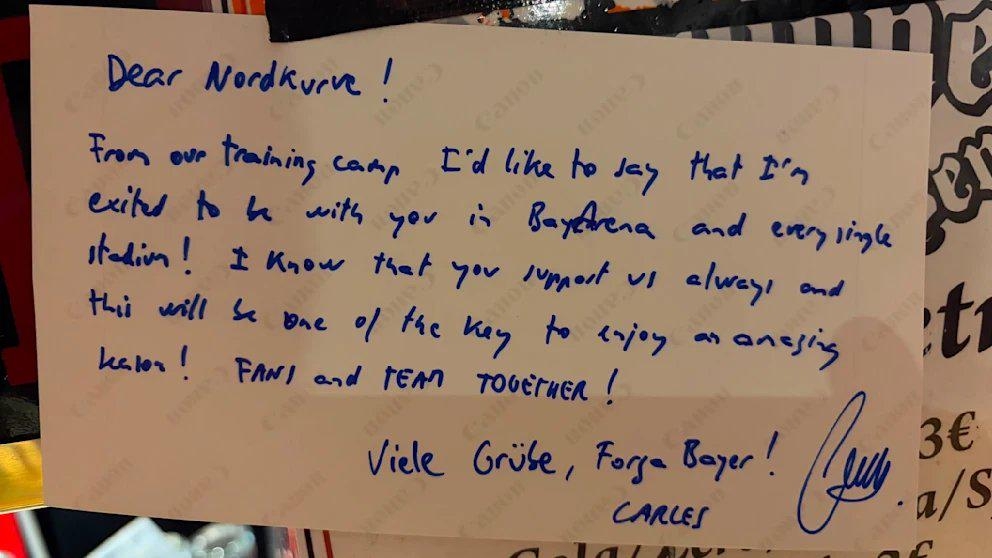 Dear Nordkurve!
From our training camp I'd like to say that I'm
exited to be with you in BayArena and every single
stadium! I know that you support us always and
this will be one of the key to enjoy an amazing
season! FANS and TEAM TOGETHER!
Viele Grüße, Forza Bayer!
CARLES
Canon
3€